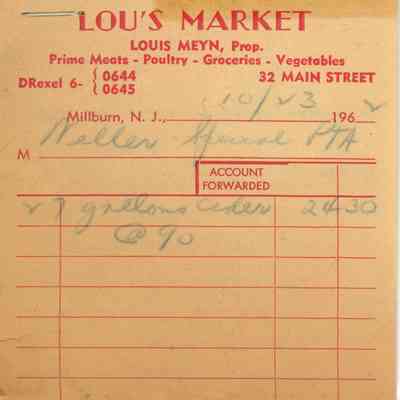 LOU'S MARKET
LOUIS MEYN, Prop.
Prime Meats - Poultry - Groceries - Vegetables
DRexel 6- { 0644 0645
32 MAIN STREET
Millburn, N. J., 10/23 1962
M Special PTA
ACCOUNT
FORWARDED
27 gallons cider 24 30
@ 90